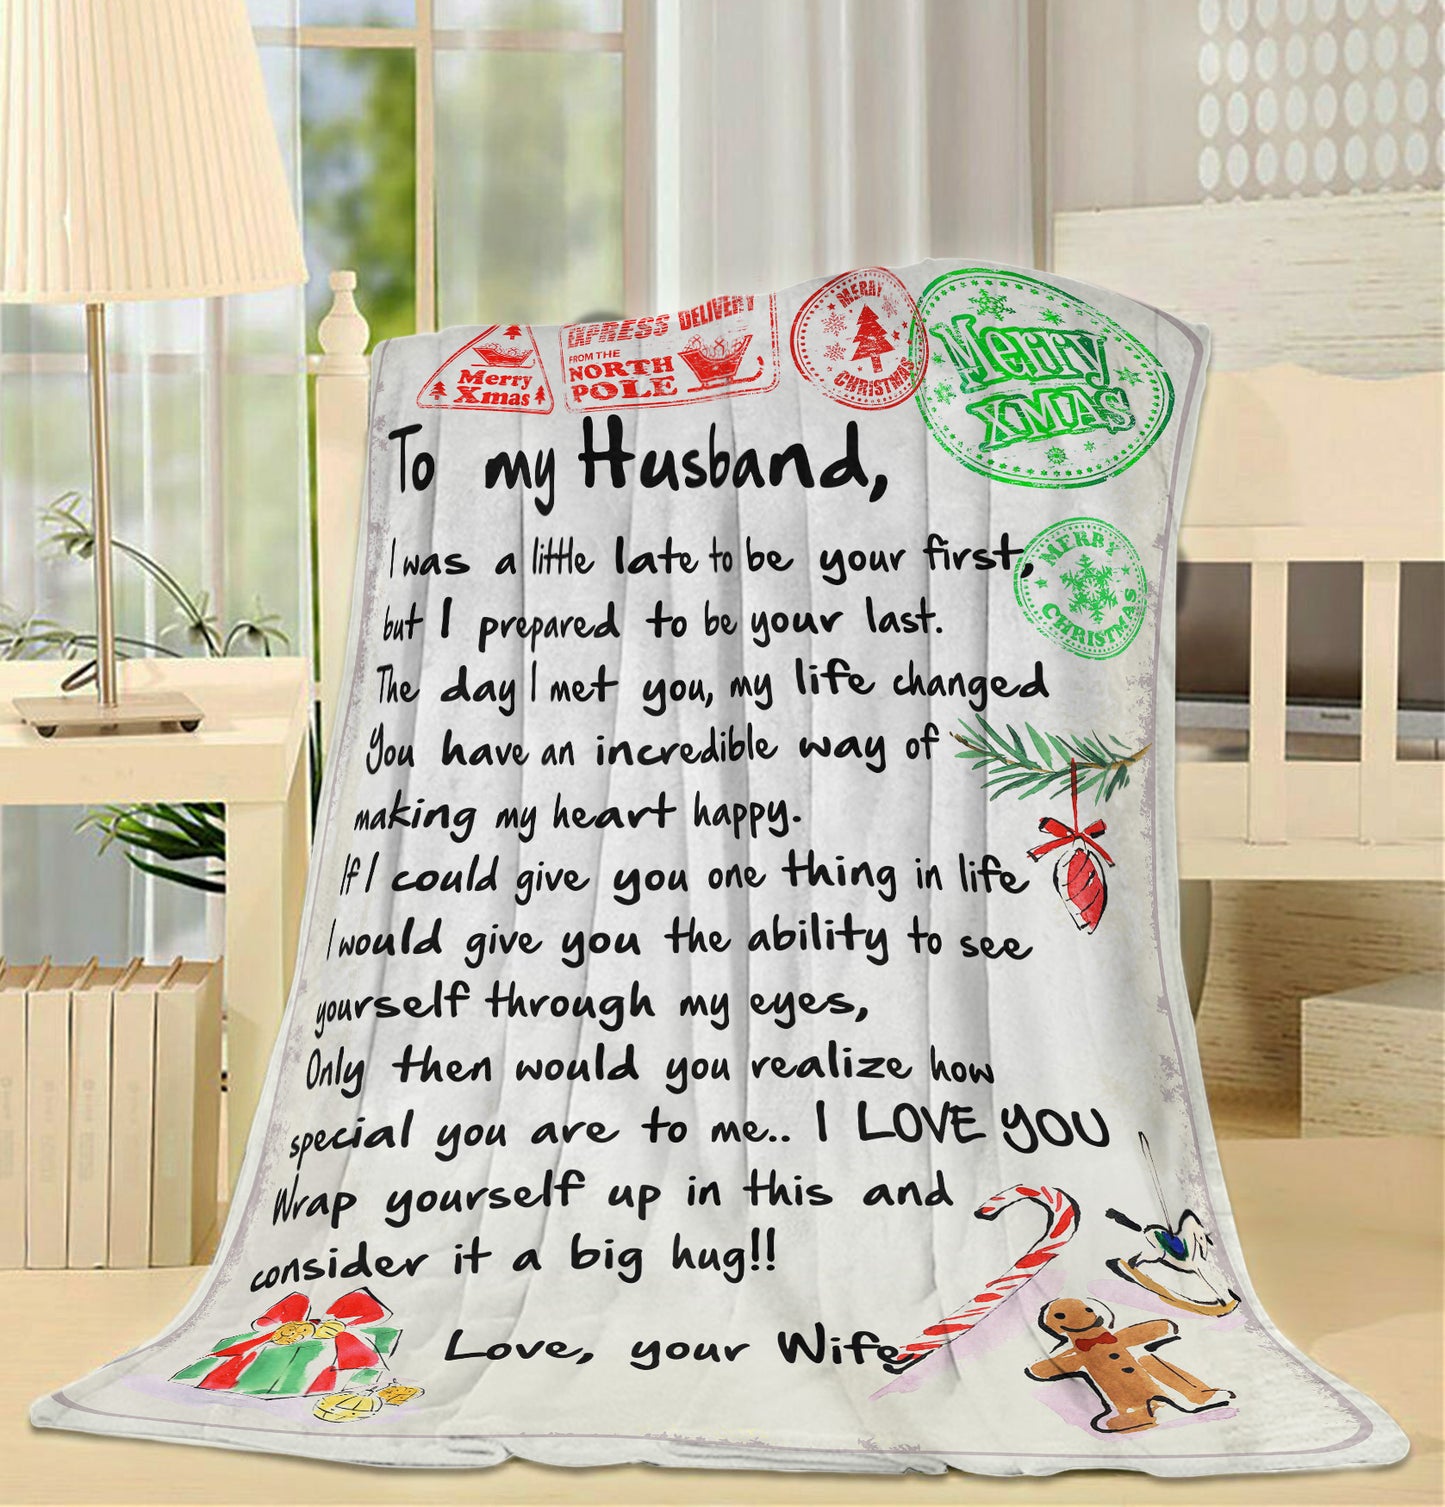 Merry
Xmas
EXPRESS DELIVERY
FROM THE
NORTH
POLE
MERRY
CHRISTMAS
Merry
XMAS
To my Husband,
I was a little late to be your first,
but I prepared to be your last.
MERRY
CHRISTMAS
The day I met you, my life changed
You have an incredible way of
making my heart happy.
If I could give you one thing in life
I would give you the ability to see
yourself through my eyes,
Only then would you realize how
special you are to me.. I LOVE YOU
Wrap yourself up in this and
consider it a big hug!!
Love, your Wife